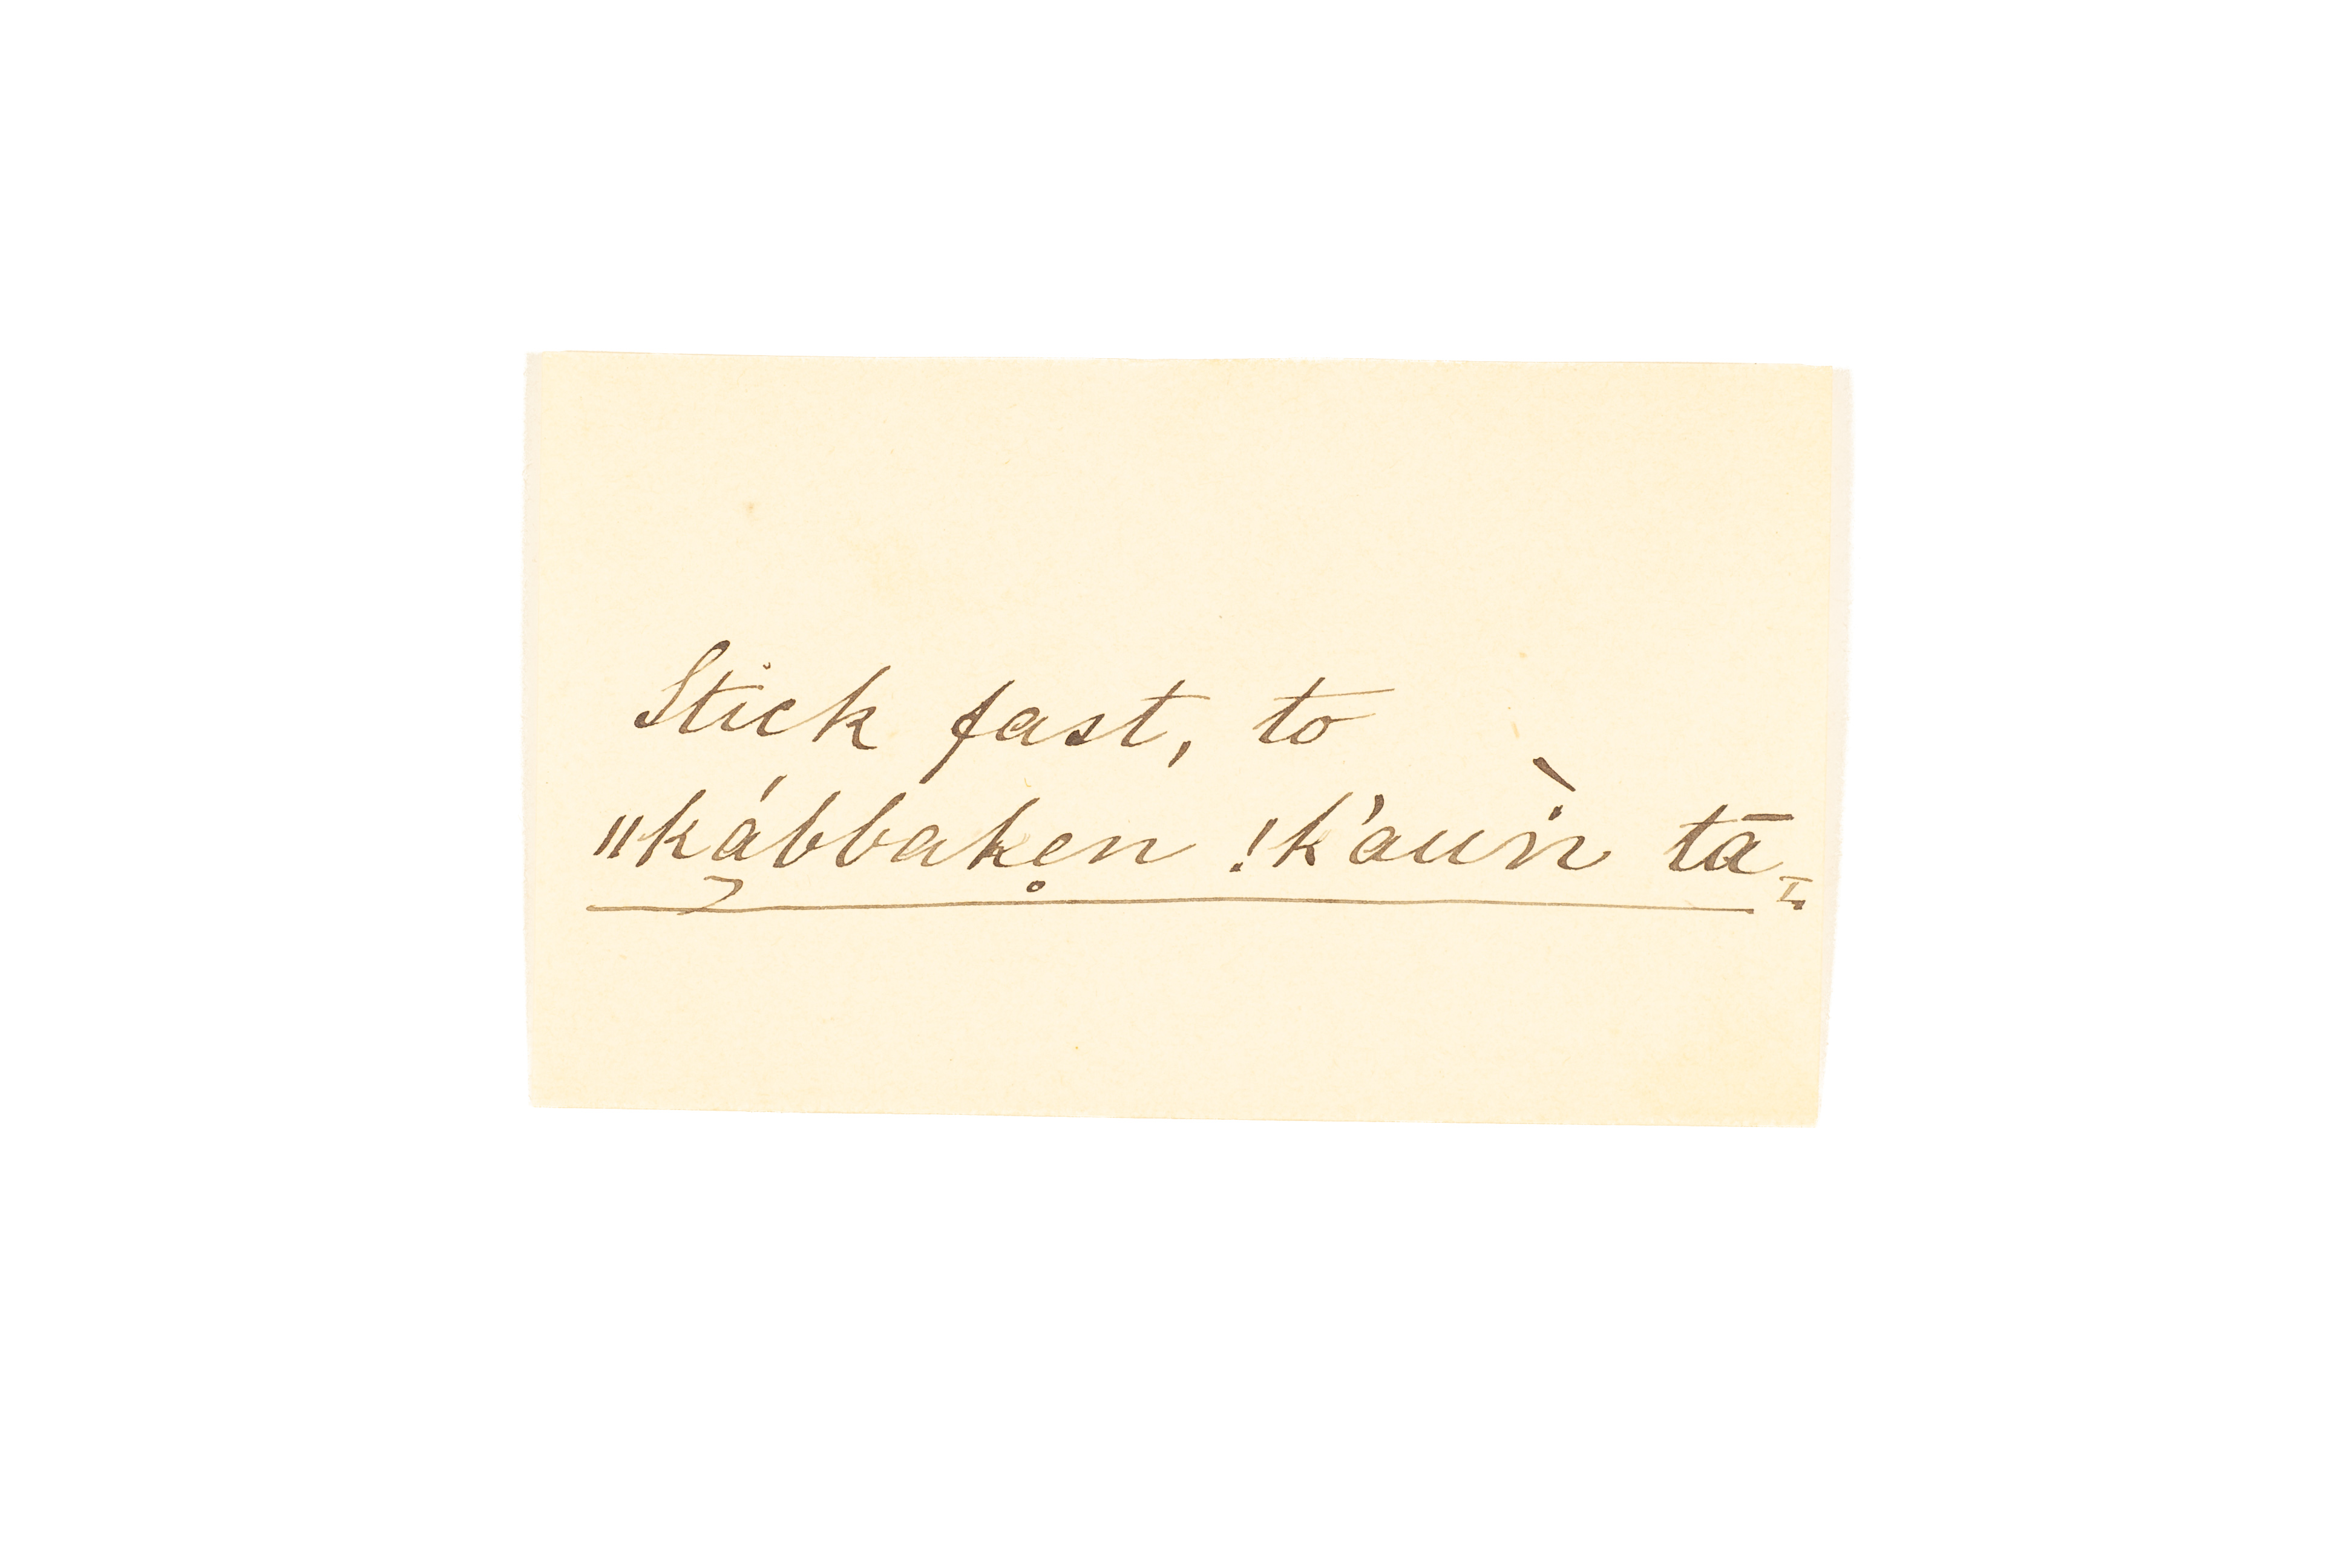 Stick fast, to
ǁkábbakẹn !k'auṅ̀ tā͟